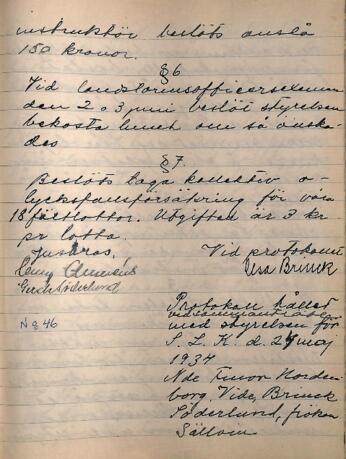 instruktör beslöts anslå
150 kronor.
§ 6
Vid landstormsofficersexamen
den 2 o 3 juni beslöt styrelsen
bekosta lunch om så önska-
des
§ 7.
Beslöts taga kollektiv o-
lycksfallsförsäkring för våra
18 fältlottor. Utgiften är 3 kr
pr lotta.
Justeras. Vid protokollet
Vera Brinck
Gerda Söderlund
N § 46
Protokoll hållet
vid sammanträde
med styrelsen för
S. L. K. d. 24 maj
1934
Nde Fruar Norden-
borg, Vide, Brinck
Söderlund, fröken